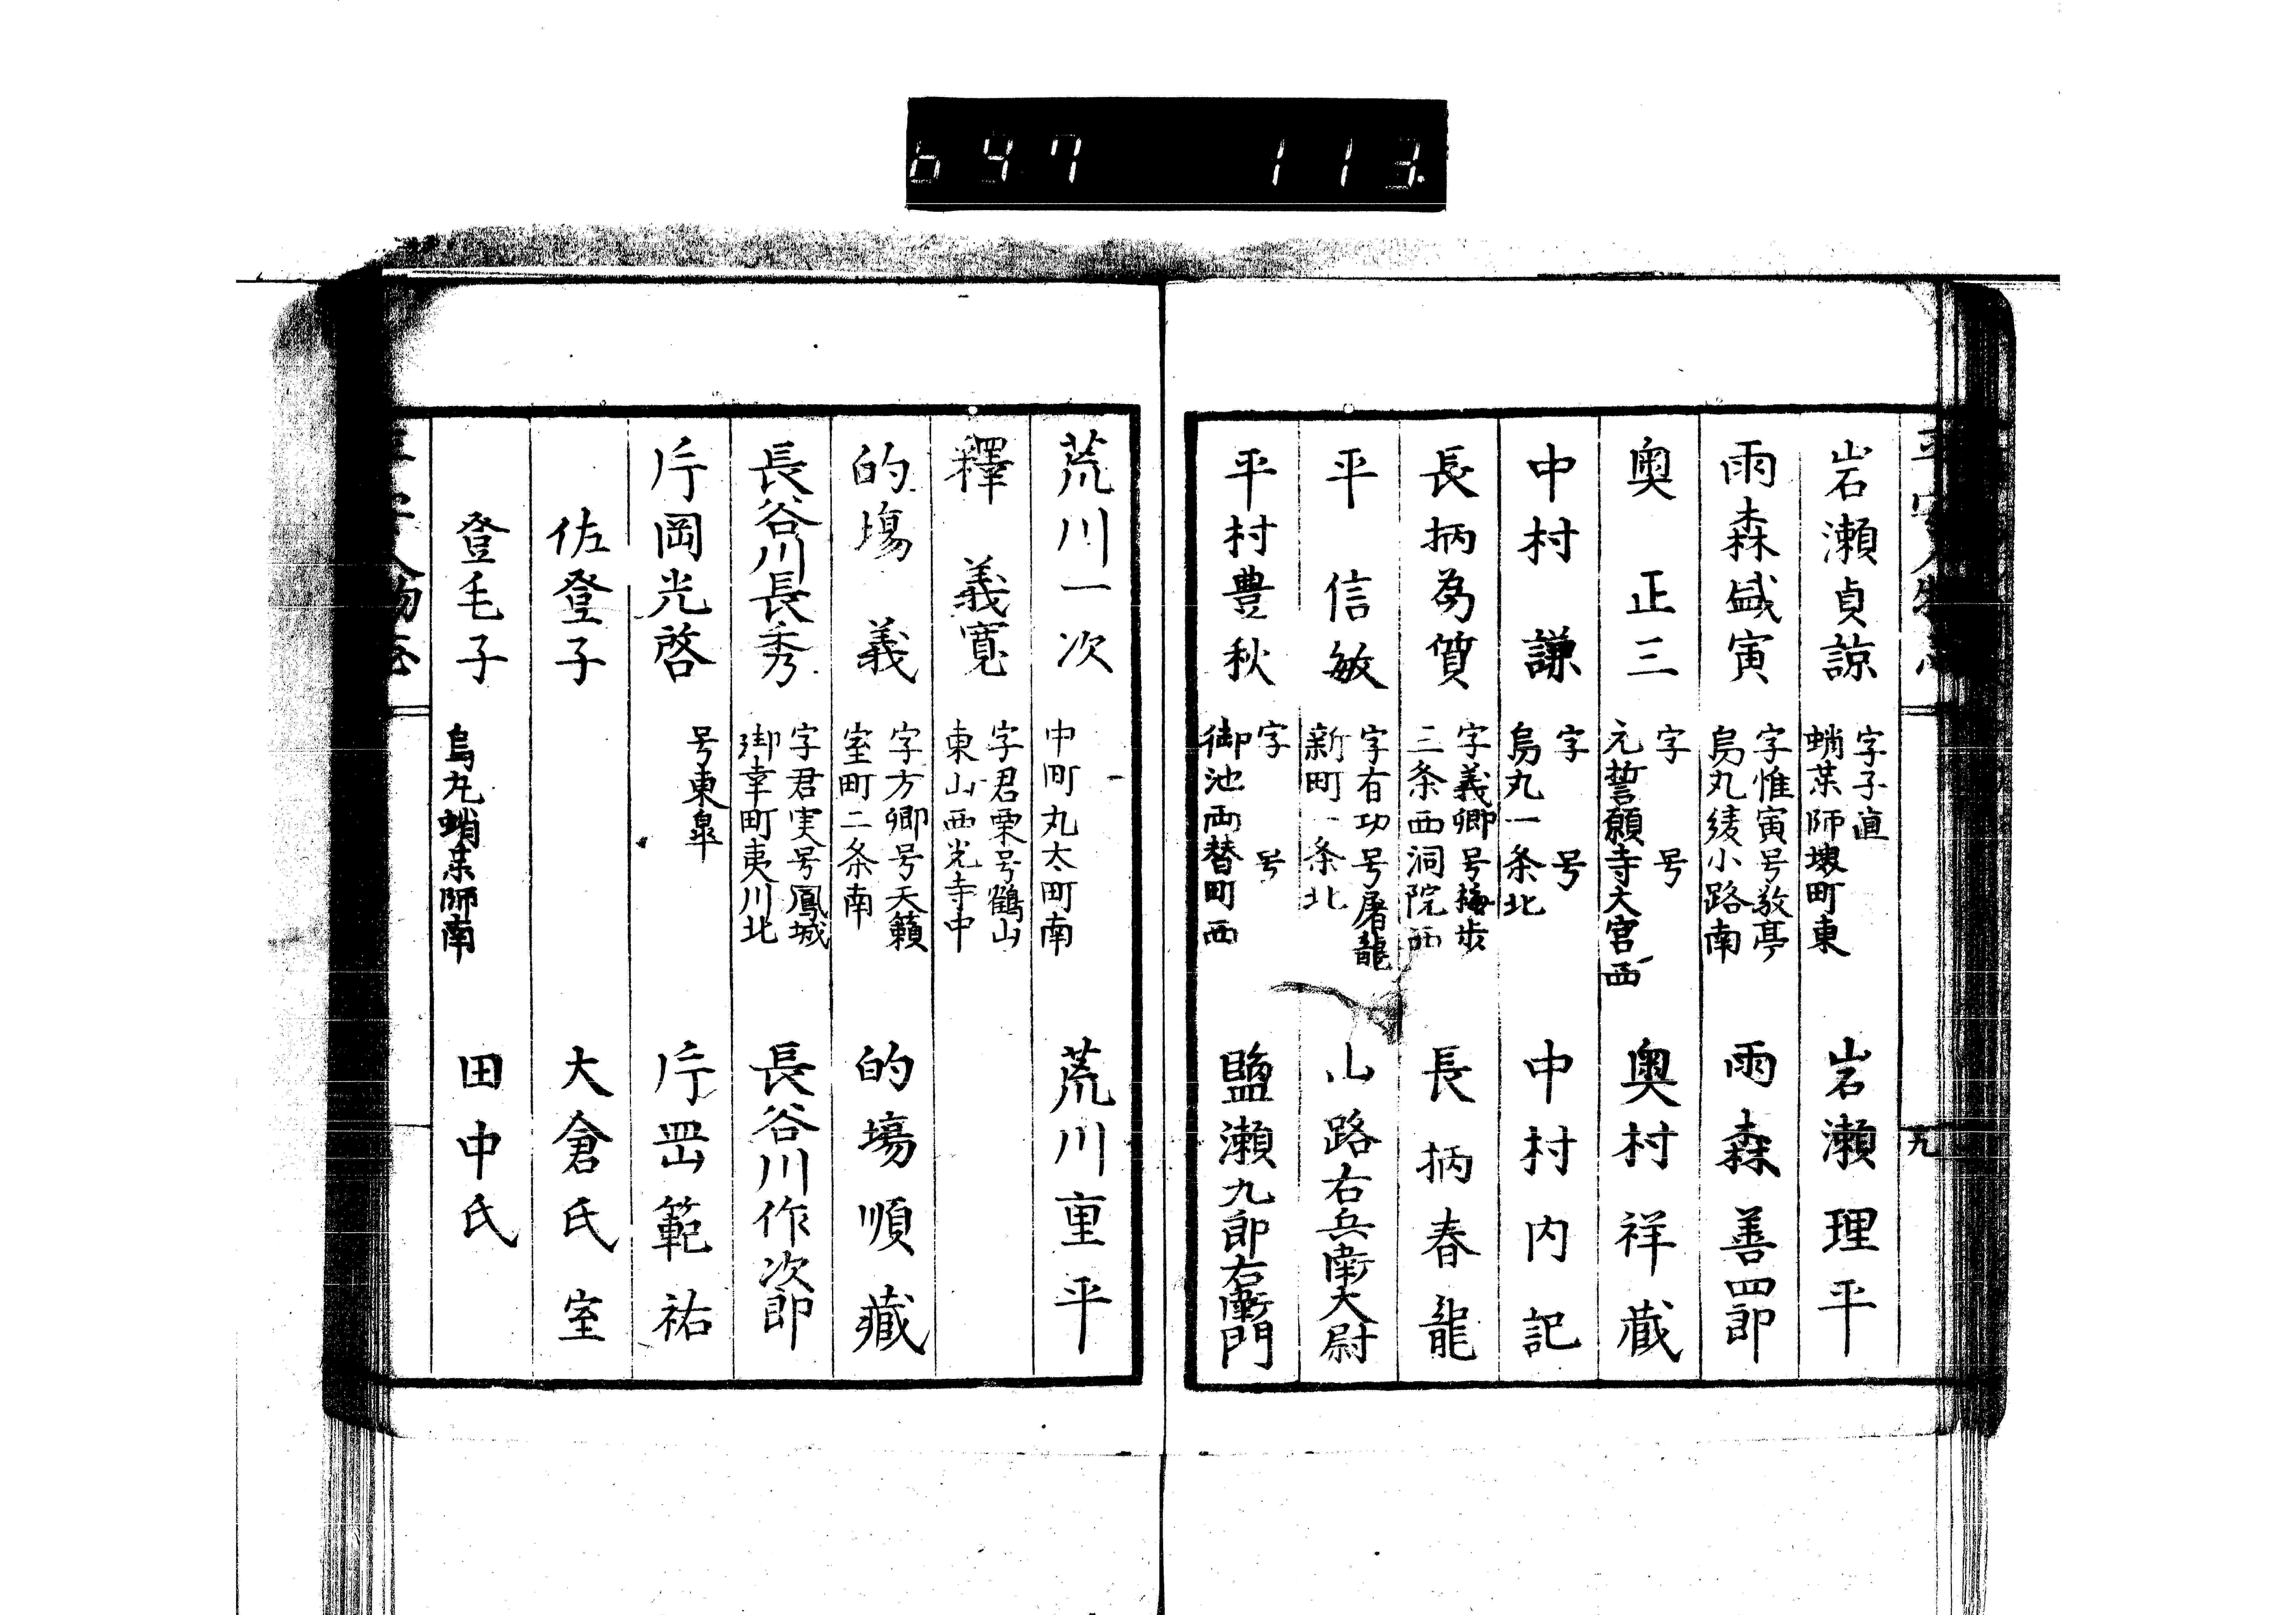 647 113
岩瀬貞諒 字子直 蛸薬師堺町東 岩瀬理平
雨森盛寅 字惟寅号敬亭 烏丸綾小路南 雨森善四郎
奥正三 字 号 元誓願寺大宮西 奥村祥蔵
中村謙 字 号 烏丸一条北 中村内記
長柄為質 字義卿号梅歩 三条西洞院西 長柄春龍
平信敏 字有功号屠龍 新町一条北 山路右兵衛大尉
平村豊秋 字 号 御池両替町西 鹽瀬九郎右衛門
九
荒川一次 中町丸太町南 荒川重平
釋義寛 字君栗号鶴山 東山西光寺中
的場義 字方卿号天籟 室町二条南 的場順藏
長谷川長秀 字君実号鳳城 御幸町夷川北 長谷川作次郎
片岡光啓 号東皐 片岡範祐
佐登子 大倉氏室
登毛子 烏丸蛸薬師南 田中氏